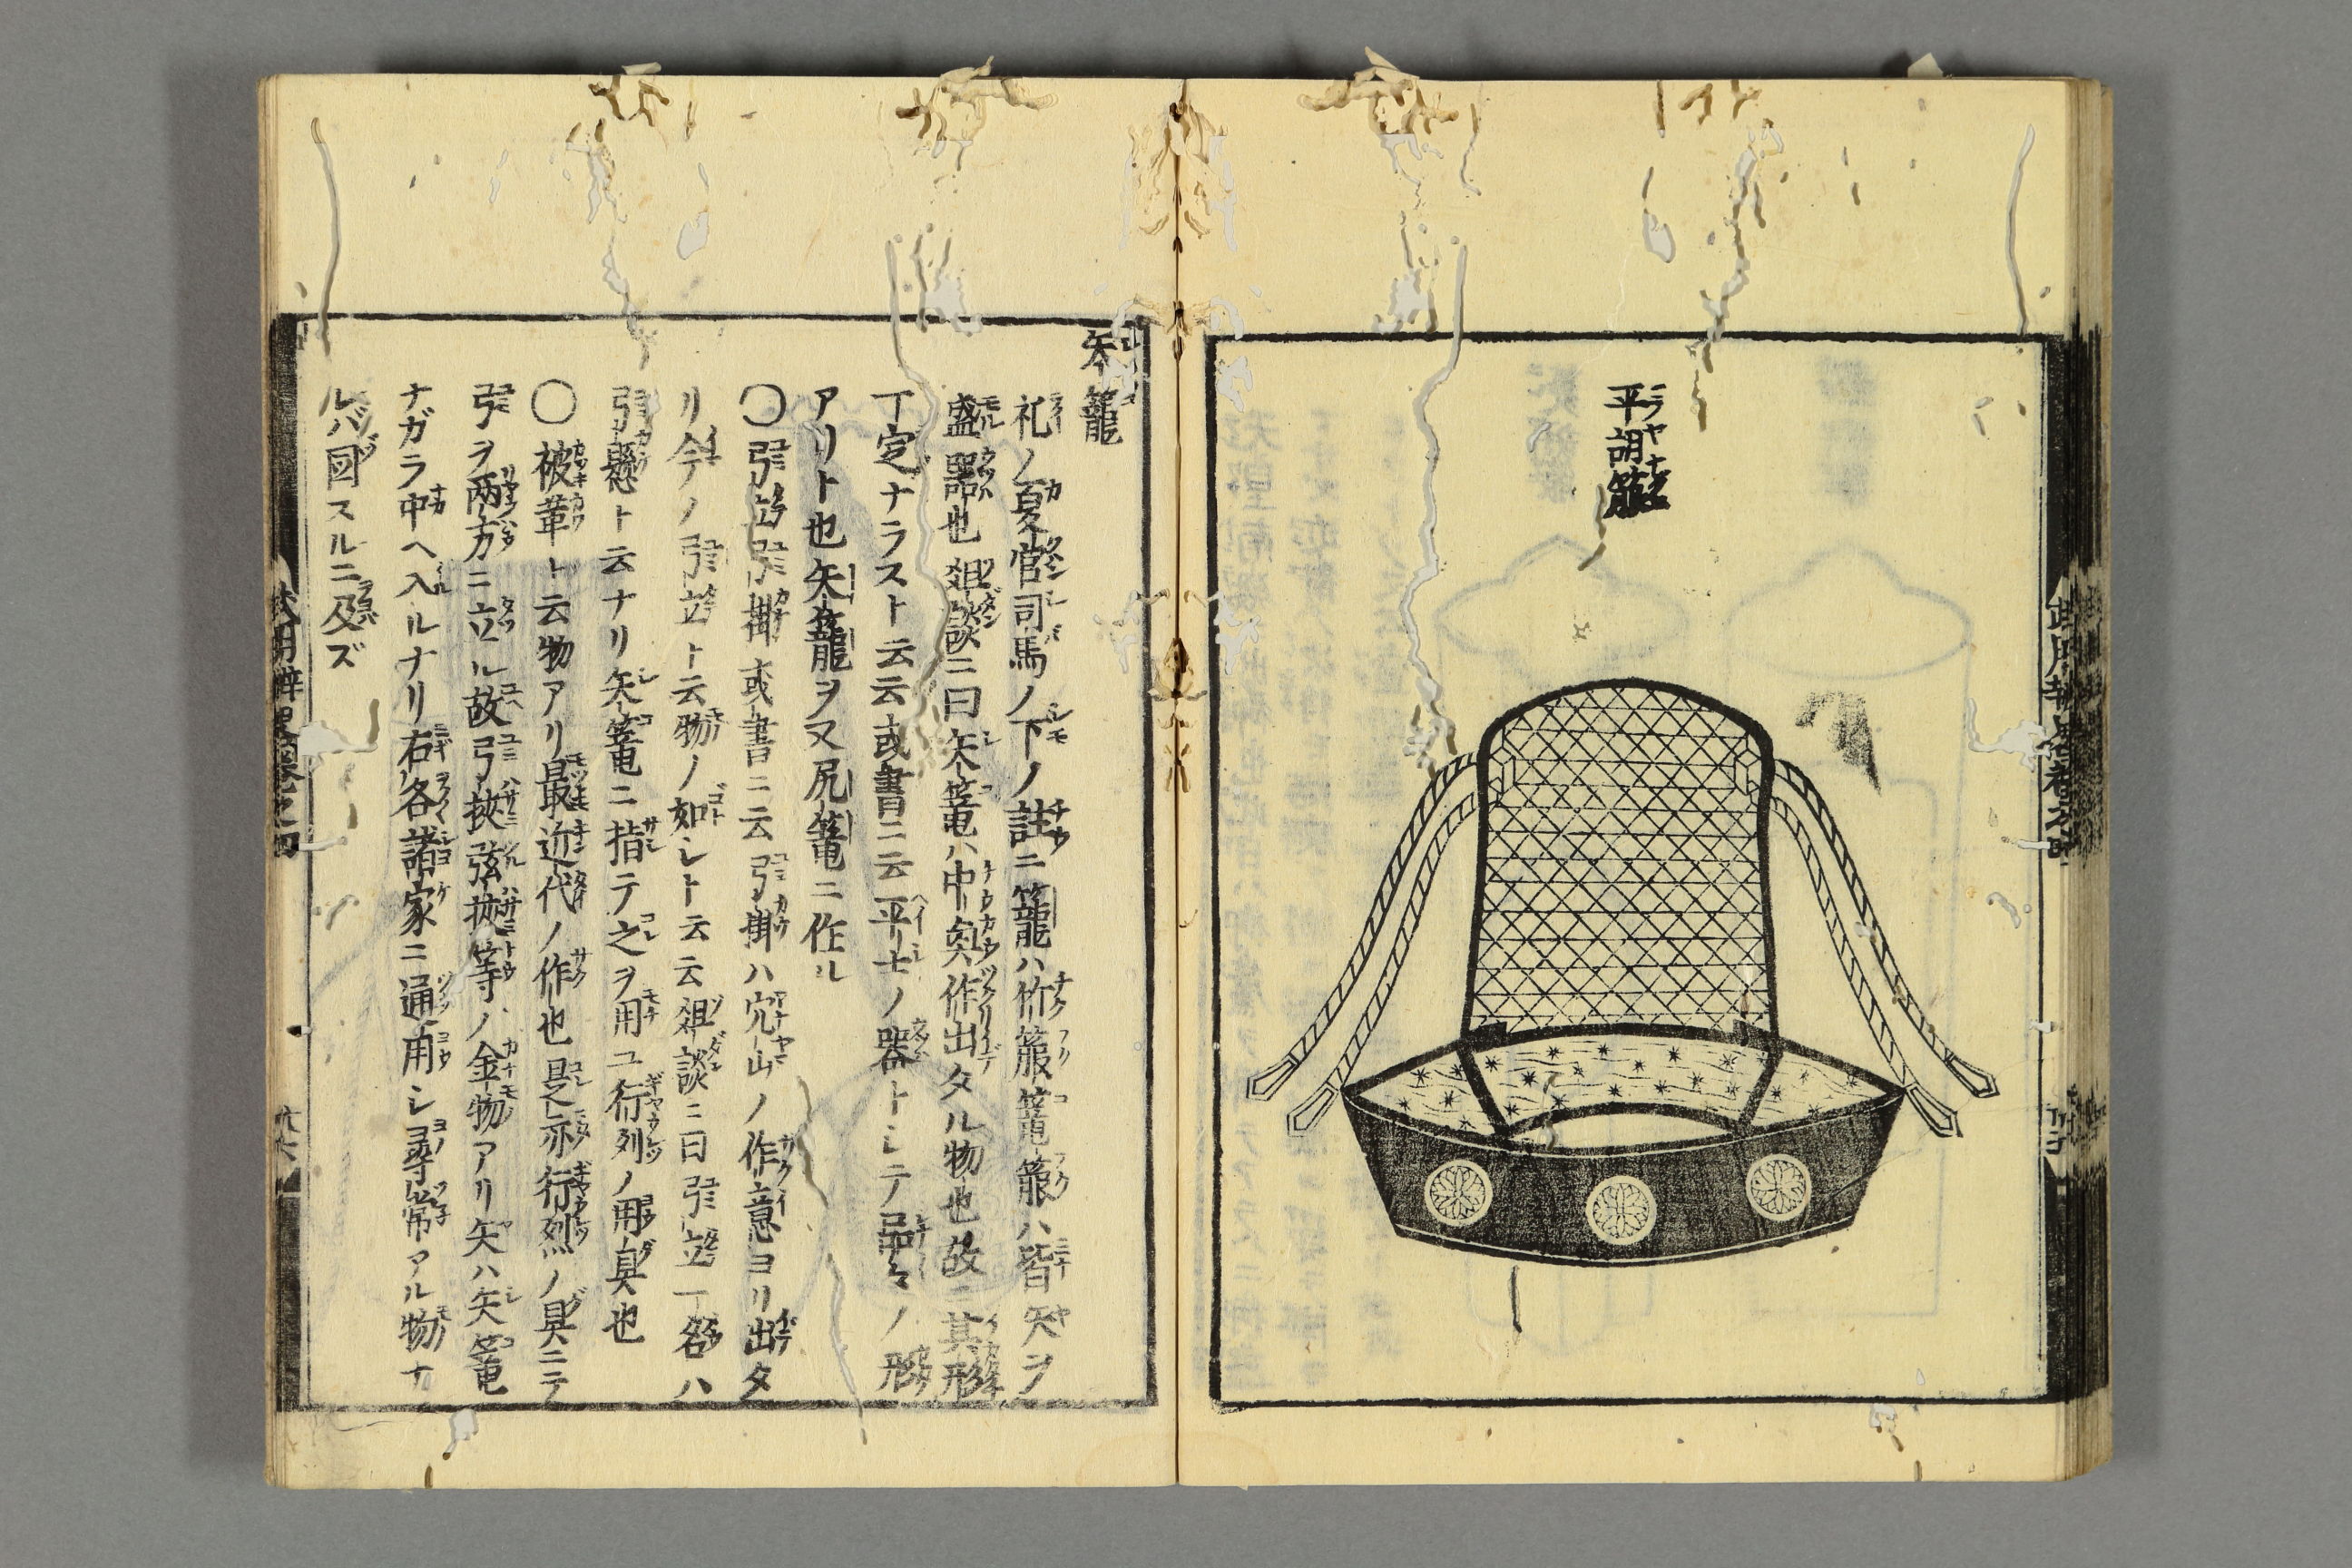 平胡簶
矢籠
礼ノ夏官司馬ノ下ノ註ニ籠ハ竹簶篭簶ハ皆矢ヲ
盛器也爼談ニ曰矢篭ハ中矣作出タル物也故ニ其形
丁定ナラスト云云或書ニ云平士ノ器トシテ品々ノ形
アリト也矢籠ヲ又尻篭ニ作ル
〇弓立弓掛或書ニ云弓掛ハ穴山ノ作意ヨリ出タ
リ今ノ弓立ト云物ノ如シト云云爼談ニ曰弓立一名ハ
弓懸ト云ナリ矢篭ニ指テ之ヲ用ユ行列ノ用具也
〇被革ト云物アリ最近代ノ作也是亦行烈ノ具ニテ
弓ヲ两方ニ立ル故弓挾弦挾等ノ金物アリ矢ハ矢篭
ナガラ中ヘ入ルナリ右各諸家ニ通用シ尋常アル物ナ
ルバ図スルニ及ズ